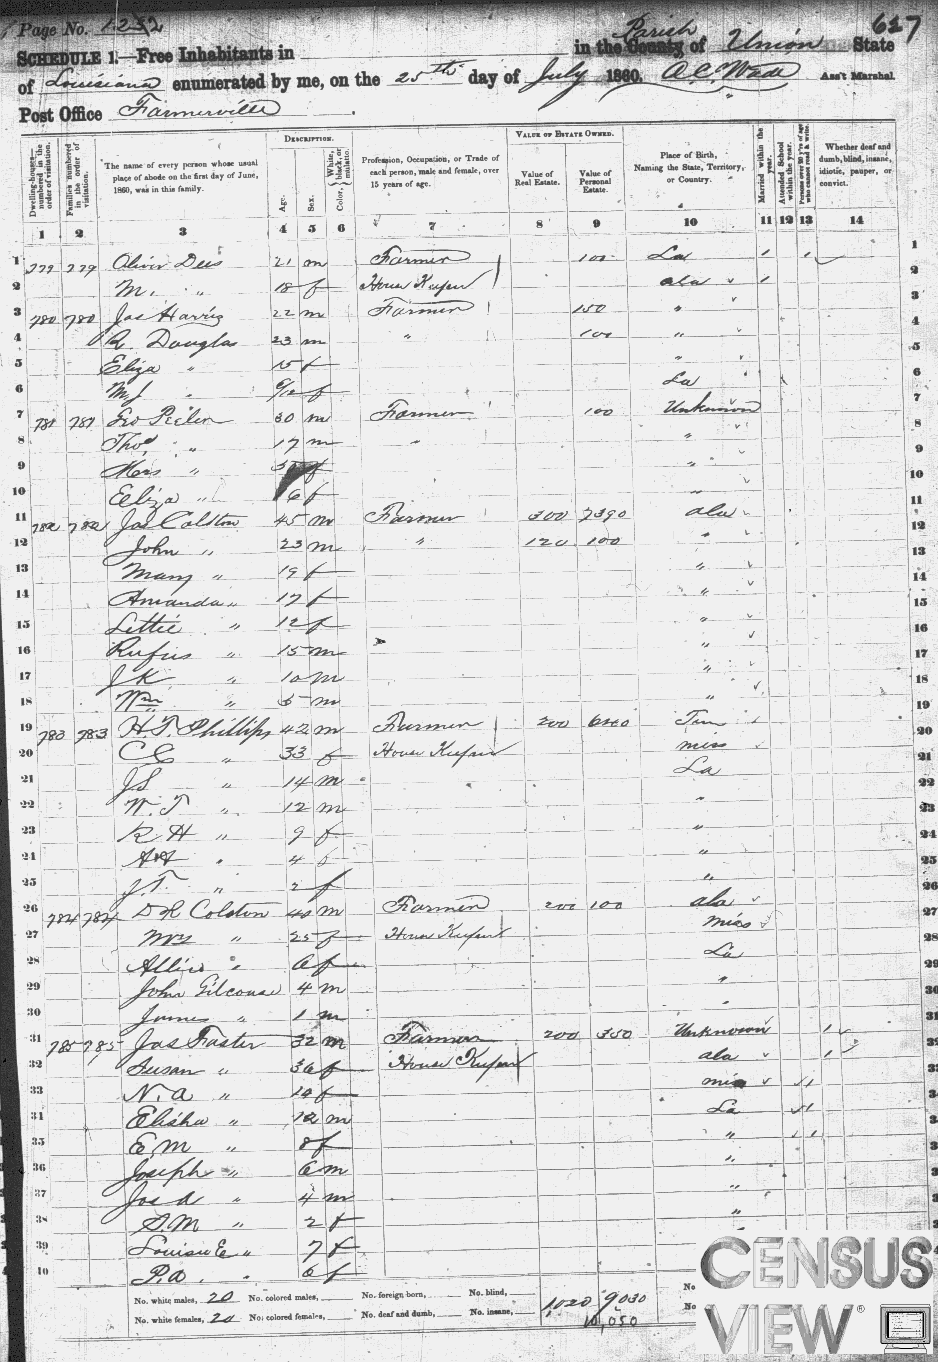 Page No. 1232
627
SCHEDULE 1.—Free Inhabitants in in the County Parish of Union State
of Louisiana enumerated by me, on the 25th day of July 1860. A.C. Wade Ass't Marshal.
Post Office Farmerville.
Dwelling-houses—numbered in the order of visitation. Families numbered in the order of visitation. The name of every person whose usual place of abode on the first day of June, 1860, was in this family. DESCRIPTION. Age. Sex. Color, White, black, or mulatto. Profession, Occupation, or Trade of each person, male and female, over 15 years of age. VALUE OF ESTATE OWNED. Value of Real Estate. Value of Personal Estate. Place of Birth, Naming the State, Territory, or Country. Married within the year. Attended School within the year. Persons over 20 y'rs of age who cannot read & write. Whether deaf and dumb, blind, insane, idiotic, pauper, or convict.
1 2 3 4 5 6 7 8 9 10 11 12 13 14
1 779 779 Oliver Dees 21 m Farmer 100 La 1 1
2 M. " 18 f House Keeper ala 1
3 780 780 Jas Harris 22 m Farmer 150 "
4 R. Douglas 23 m " 100 "
5 Eliza " 15 f "
6 M J " 6/12 f La
7 781 781 Geo 30 m Farmer 100 Unknown
8 Thos " 17 m " "
9 Mrs " f "
10 Eliza " 6 f "
11 782 782 Jas Colston 45 m Farmer 300 7390 ala
12 John " 23 m " 120 100 "
13 Mary " 19 f "
14 Amanda " 17 f "
15 Lettie " 12 f "
16 Rufus " 15 m "
17 J K " 10 m "
18 Wm " 5 m "
19 783 783 H.T. Phillips 42 m Farmer 200 640 Tenn
20 C E " 33 f House Keeper miss
21 J S " 14 m La
22 W. T " 12 m "
23 R H " 9 f "
24 A A " 4 f "
25 J. T. " 2 f "
26 784 784 D R Colston 40 m Farmer 200 100 ala
27 Mrs " 25 f House Keeper Miss
28 " 6 f La
29 John Gilcouse 4 m "
30 James " 1 m "
31 785 785 Jas Foster 32 m Farmer 200 350 Unknown 1
32 Susan " 36 f House Keeper ala 1
33 N. A " 14 f miss 1
34 Elisha " 12 m La 1
35 E M " 8 f " 1
36 Joseph " 6 m "
37 Jos A " 4 m "
38 S. M " 2 f "
39 Louisa E " 7 f
40 P. A. " 6 f
No. white males, 20 No. colored males, No. foreign born, No. blind, 1,020 9,030 No.
No. white females, 20 No. colored females, No. deaf and dumb, No. insane, 10,050 No.
CENSUS
VIEW®